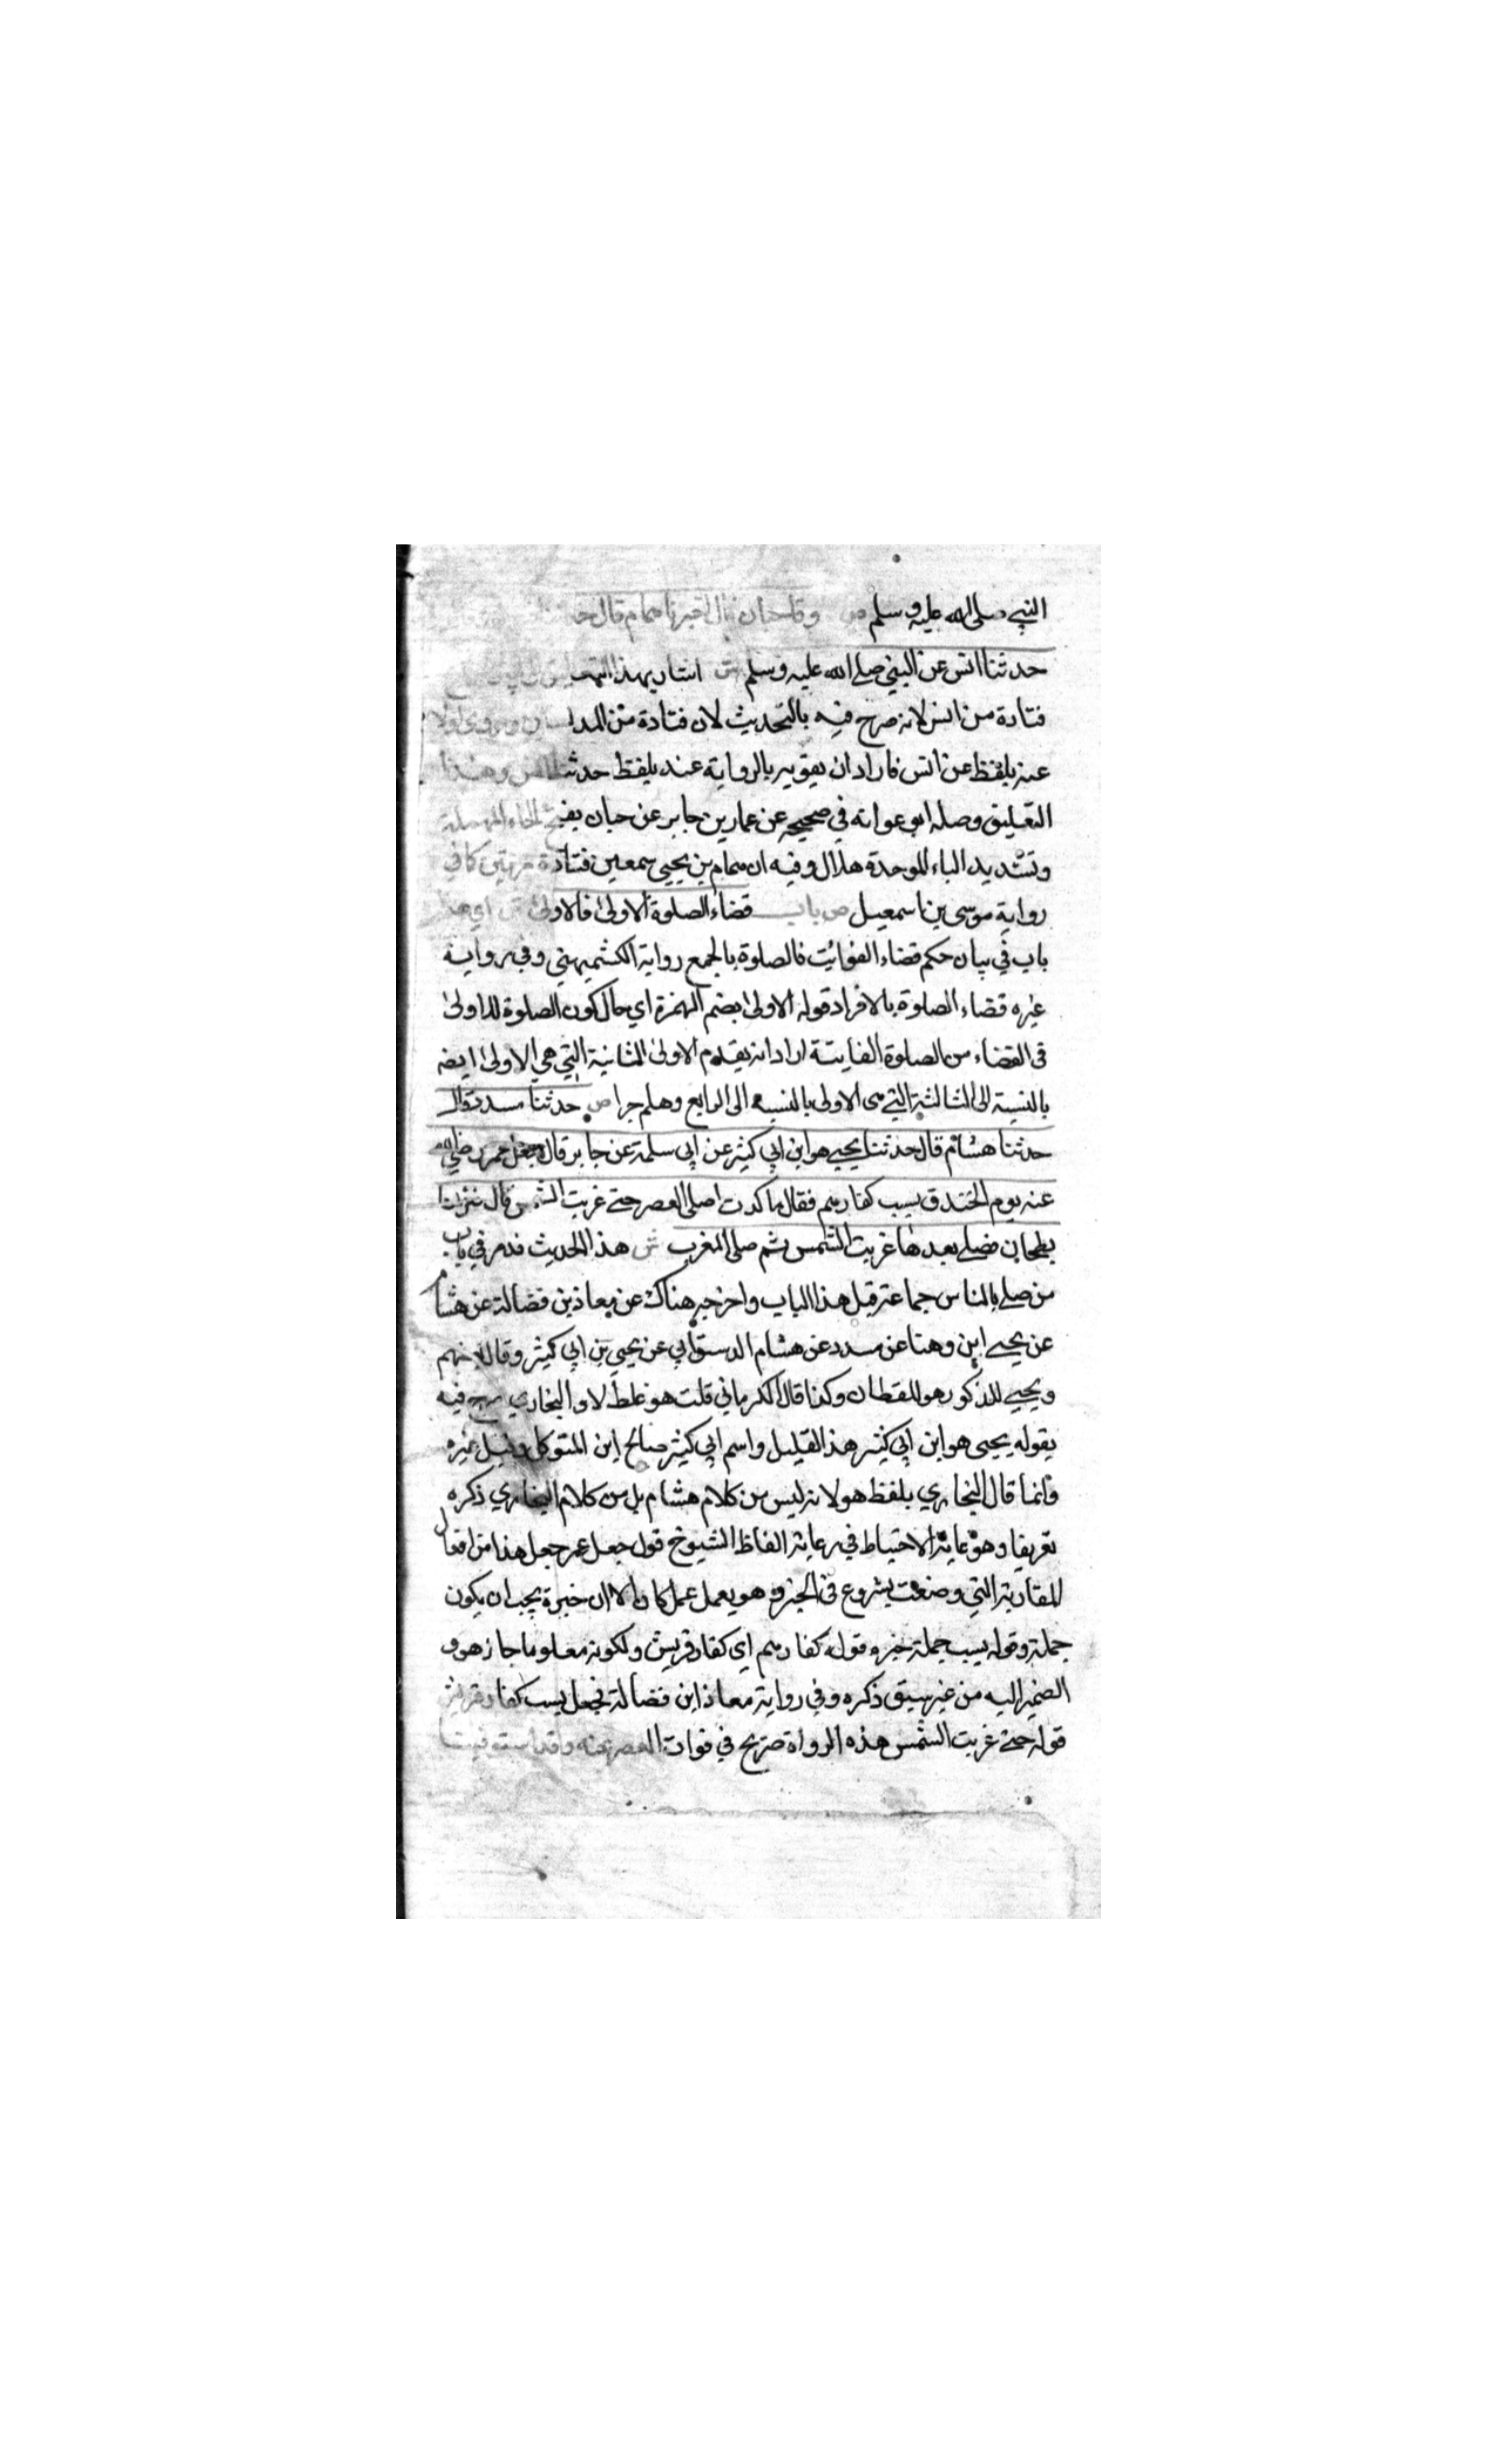 النبي صلى الله عليه وسلم ص وقال حبان قال اخبرنا همام قال حد
حدثنا انس عن النبي صلى الله عليه وسلم ش اشار بهذا التعليق
قتادة من انس لانه صرح فيه بالتحديث لان قتادة من المدلسين وروى اولا
عنه بلفظ عن انس فاراد ان يقويه بالرواية عنه بلفظ حدثنا انس وهذا
التعليق وصله ابو عوانه في صحيحه عن عمار بن جابر عن حبان بفتح الحاء المهملة
وتشديد الباء الموحدة هلال وفيه ان همام بن يحيى سمعه من قتادة مرتين كما في
رواية موسى بن اسمعيل ص باب قضاء الصلوة الاولى فالاولى ش اي هذا
باب في بيان حكم قضاء الفوائت فالصلوة بالجمع رواية الكشميهني وفي رواية
غيره قضاء الصلوة بالافراد قوله الاولى بضم الهمزة اي حال كون الصلوة الاولى
في القضاء من الصلوة الفايتة اراد انه يقدم الاولى الثانية التي هي الاولى ايضه
بالنسبة الى الثالثة التي هي الاولى بالنسبه الى الرابع وهلم جرا ص حدثنا مسدد قال
حدثنا هشام قال حدثنا يحيى هو ابن ابي كثير عن ابي سلمة عن جابر قال جعل عمر رضي الله
عنه يوم الخندق يسب كفارهم فقال ما كدت اصلي العصر حتى غربت الشمس قال فنزلنا
بطحان فصلى بعد ها غربت الشمس ثم صلى المغرب ش هذا الحديث قد مر في باب
من صلى بالناس جماعة قبل هذا الباب واخرجه هناك عن معاذ بن فضالة عن هشام
عن يحيى ابن وهنا عن مسدد عن هشام الدستوائي عن يحيى بن ابي كثير وقال
ويحيى المذكور هو القطان وكذا قال الكرماني قلت هو غلط لان البخاري صرح فيه
بقوله يحيى هو ابن ابي كثير هذا القليل واسم ابي كثير صالح ابن المتوكل وقيل غيره
وانما قال البخاري بلفظ هو لانه ليس من كلام هشام بل من كلام البخاري ذكره
تعريفا وهو غاية الاحتياط في رعاية الفاظ الشيوخ قول جعل عمر جعل هذا من افعال
المقاربة التي وضعت يشروع في الخبر وهو يعمل عمل كان الا ان خبره يجب ان يكون
جملة وقوله يسب جملة خبره قوله كفارهم اي كفار قريش ولكونه معلوما جاز هوو
الضمير اليه من غير سبق ذكره وفي رواية معاذ ابن فضالة فجعل يسب كفار قريش
قوله حتى غربت الشمس هذه الرواة صريح في فوات العصر عنه وقد استوفينا